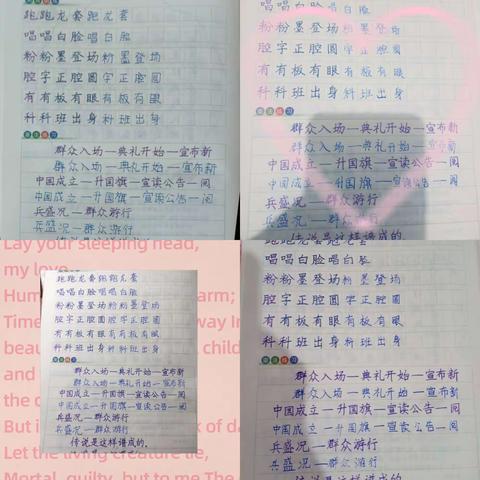 跑跑龙套跑龙套
唱唱白脸唱白脸
粉粉墨登场粉墨登场
腔字正腔圆字正腔圆
有有板有眼有板有眼
科科班出身科班出身
群众入场—典礼开始—宣布新
群众入场—典礼开始—宣布新
中国成立—升国旗—宣读公告—阅
中国成立—升国旗—宣读公告—阅
兵盛况—群众游行
兵盛况—群众游行
唱唱白脸唱白脸
粉粉墨登场粉墨登场
腔字正腔圆字正腔圆
有有板有眼有板有眼
科科班出身科班出身
群众入场—典礼开始—宣布新
群众入场—典礼开始—宣布新
中国成立—升国旗—宣读公告—阅
中国成立—升国旗—宣读公告—阅
兵盛况—群众游行
兵盛况—群众游行
传说是这样谱成的.
Lay your sleeping head,
my love
Hum arm;
Time way
beau child
and
the
But i k of da
Let the living creature lie,
Mortal, guilty, but to me The
跑跑龙套跑跑龙套
唱唱白脸唱唱白脸
粉粉墨登场粉粉墨登场
腔字正腔圆腔字正腔圆
有有板有眼有有板有眼
科科班出身科科班出身
群众入场—典礼开始—宣布新
群众入场—典礼开始—宣布新
中国成立—升国旗—宣读公告—阅
中国成立—升国旗—宣读公告—阅
兵盛况—群众游行
兵盛况—群众游行
传说是这样谱成的.
跑跑龙套跑龙套
唱唱白脸唱白脸
粉粉墨登场粉墨登场
腔字正腔圆字正腔圆
有有板有眼有板有眼
科科班出身科班出身
群众入场—典礼开始—宣布新
群众入场—典礼开始—宣布新
中国成立—升国旗—宣读公告—阅
中国成立—升国旗—宣读公告—阅
兵盛况—群众游行
兵盛况—群众游行